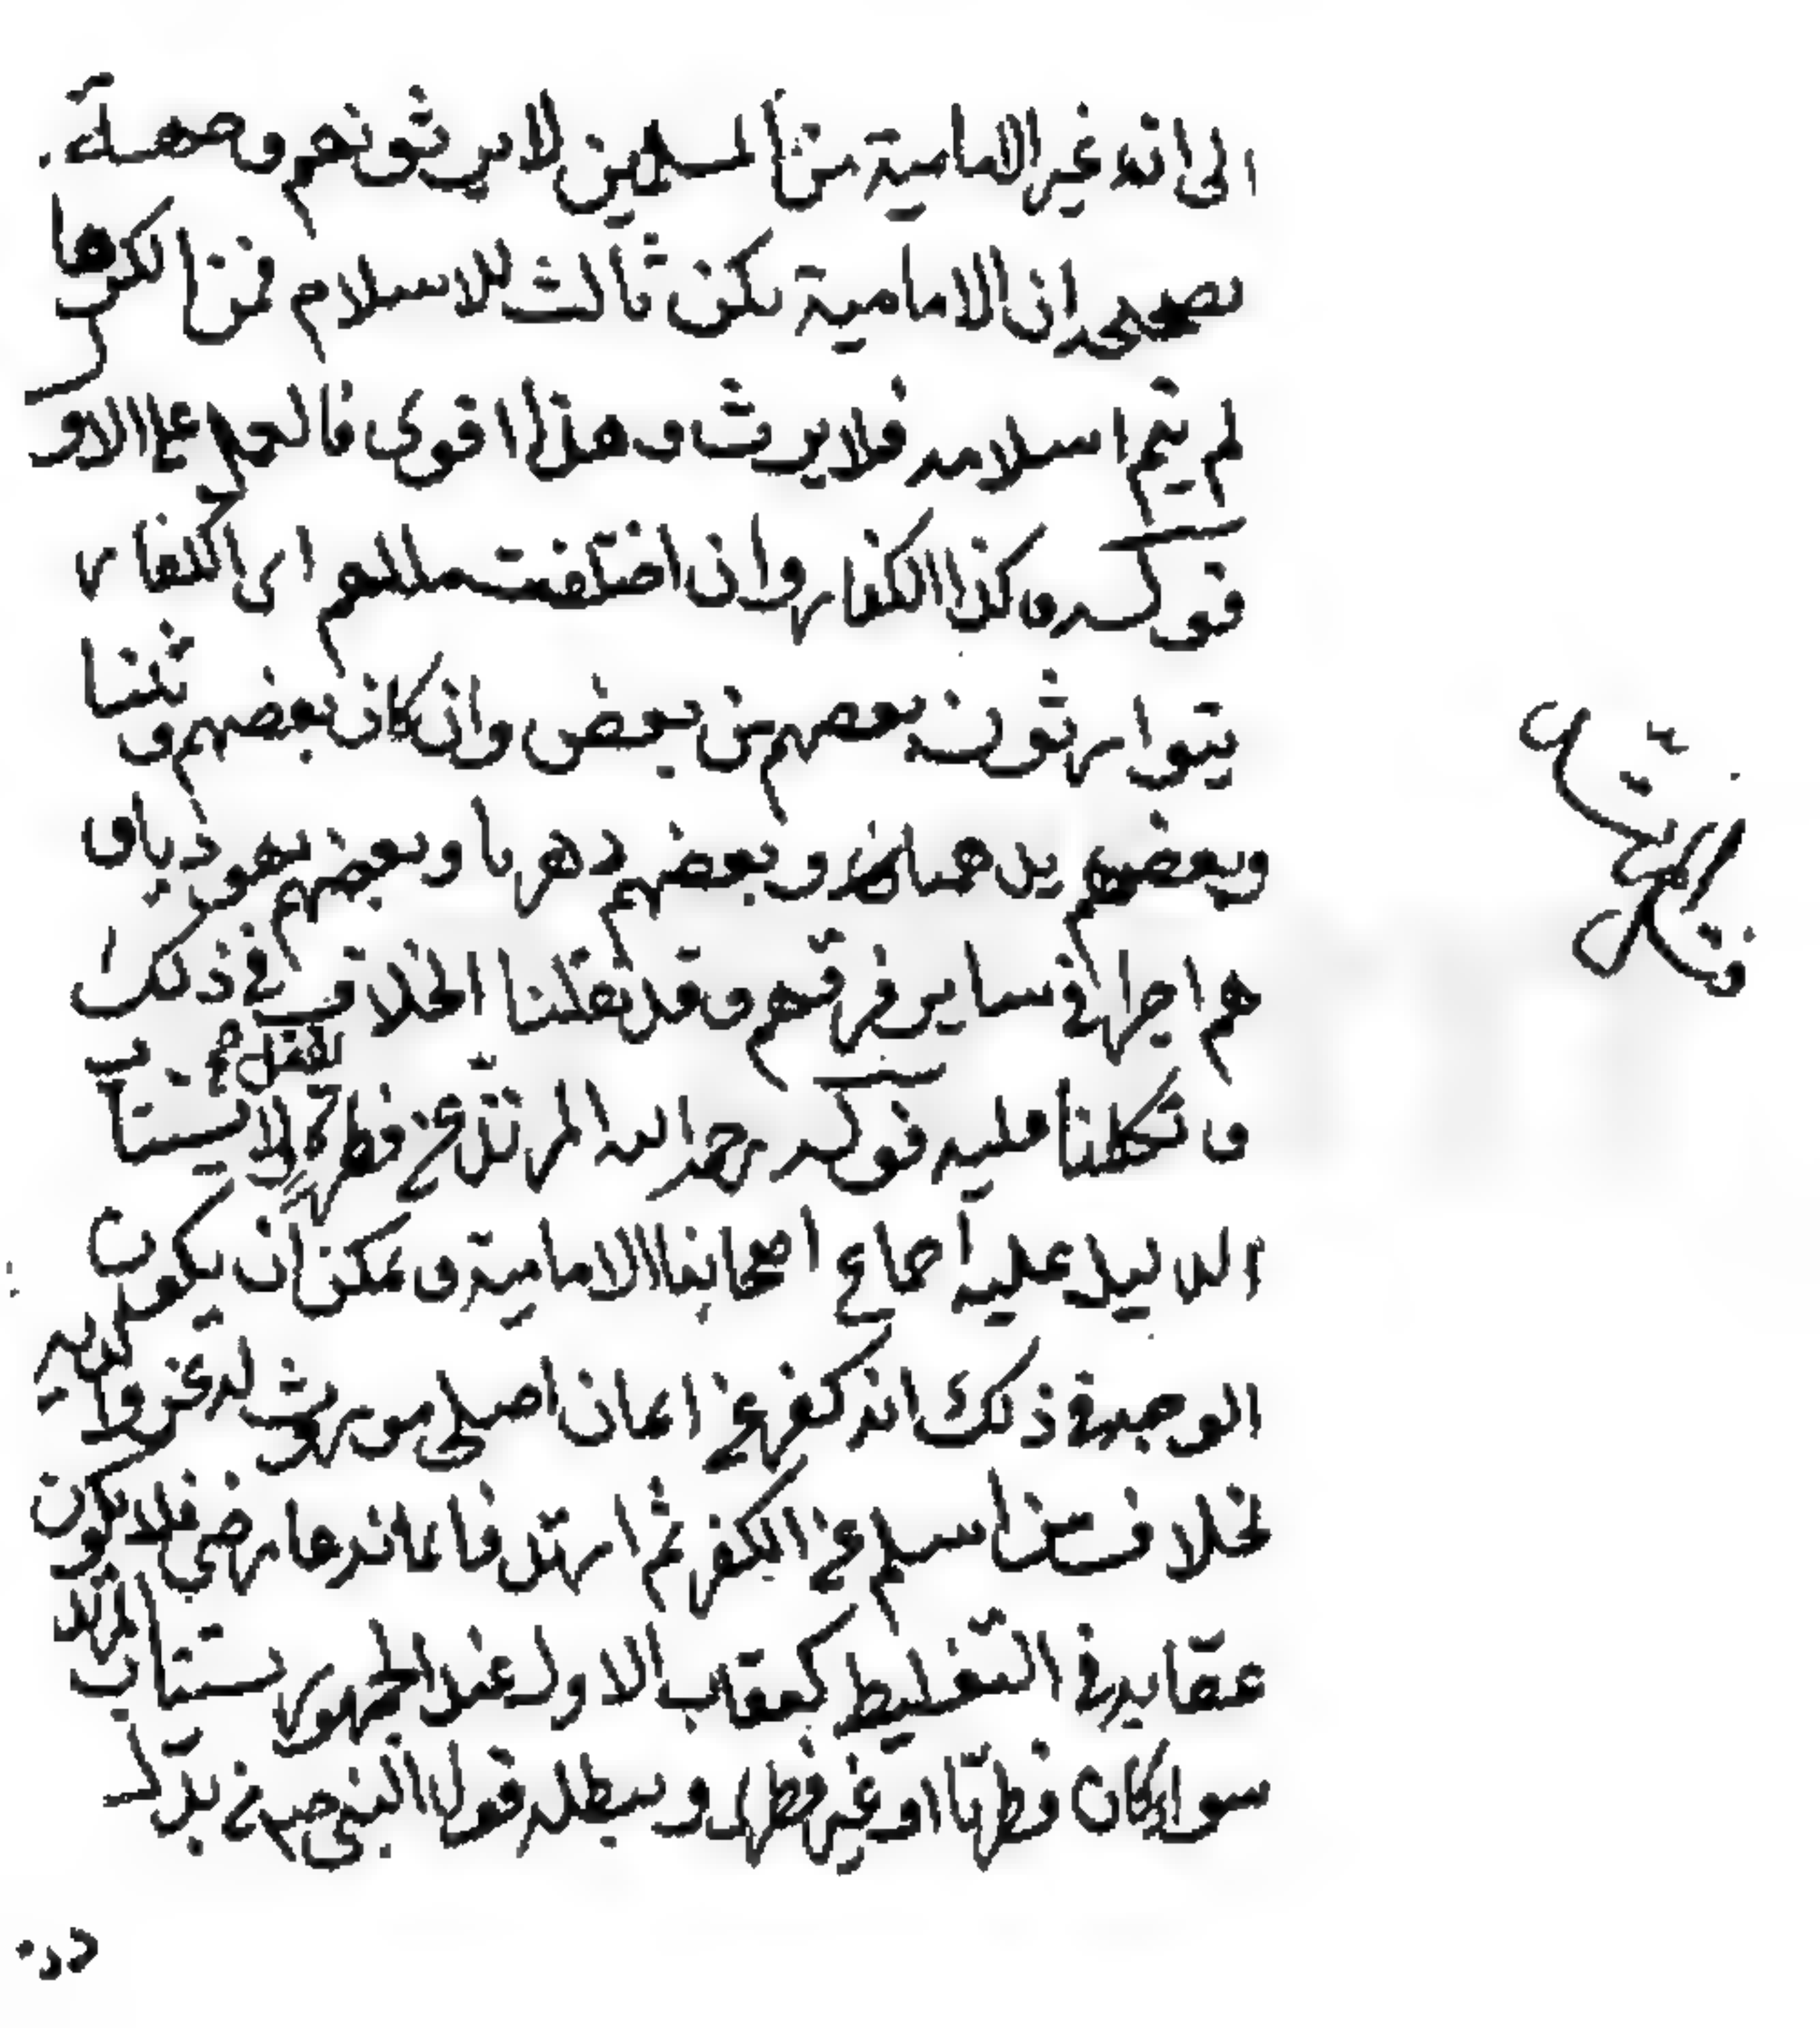 الى انه غير الامامية من المسلمين لا يرثونهم وجهة
تصحيحه ان الامامية ركن ثالث للاسلام فمن انكرها
لم يتم اسلامه فلا يرث وهذا اقوى فالعمل على الاول
قوله وكذا الكفار وان اختلفت مللهم اى الكفار
يتوارثون بعضهم من بعض وان كان بعضهم وثنيا
وبعضهم وبعضهم دهريا وبعضهم يهوديا و
هم اجراء فى ساير فرقهم وقد نقلنا الخلاف فى ذلك
وتكلمنا عليه قوله رحمه الله المرتد عن فطرة لا يستتاب
الدليل عليه اجماع اصحابنا الامامية و يمكن ان يكون
الوجه فى ذلك انه كفر عن ايمان اصلى موروث له عن ابويه
بخلاف من اسلم عن الكفر ثم ارتد فايمانه عارضى فلا يكون
عقابه فى التغليظ كعقاب الاول عند الجمهور يستتاب المرتد
سواء كان فطريا او غير فطرى ويبطله قول النبى ص من بدل
دينه